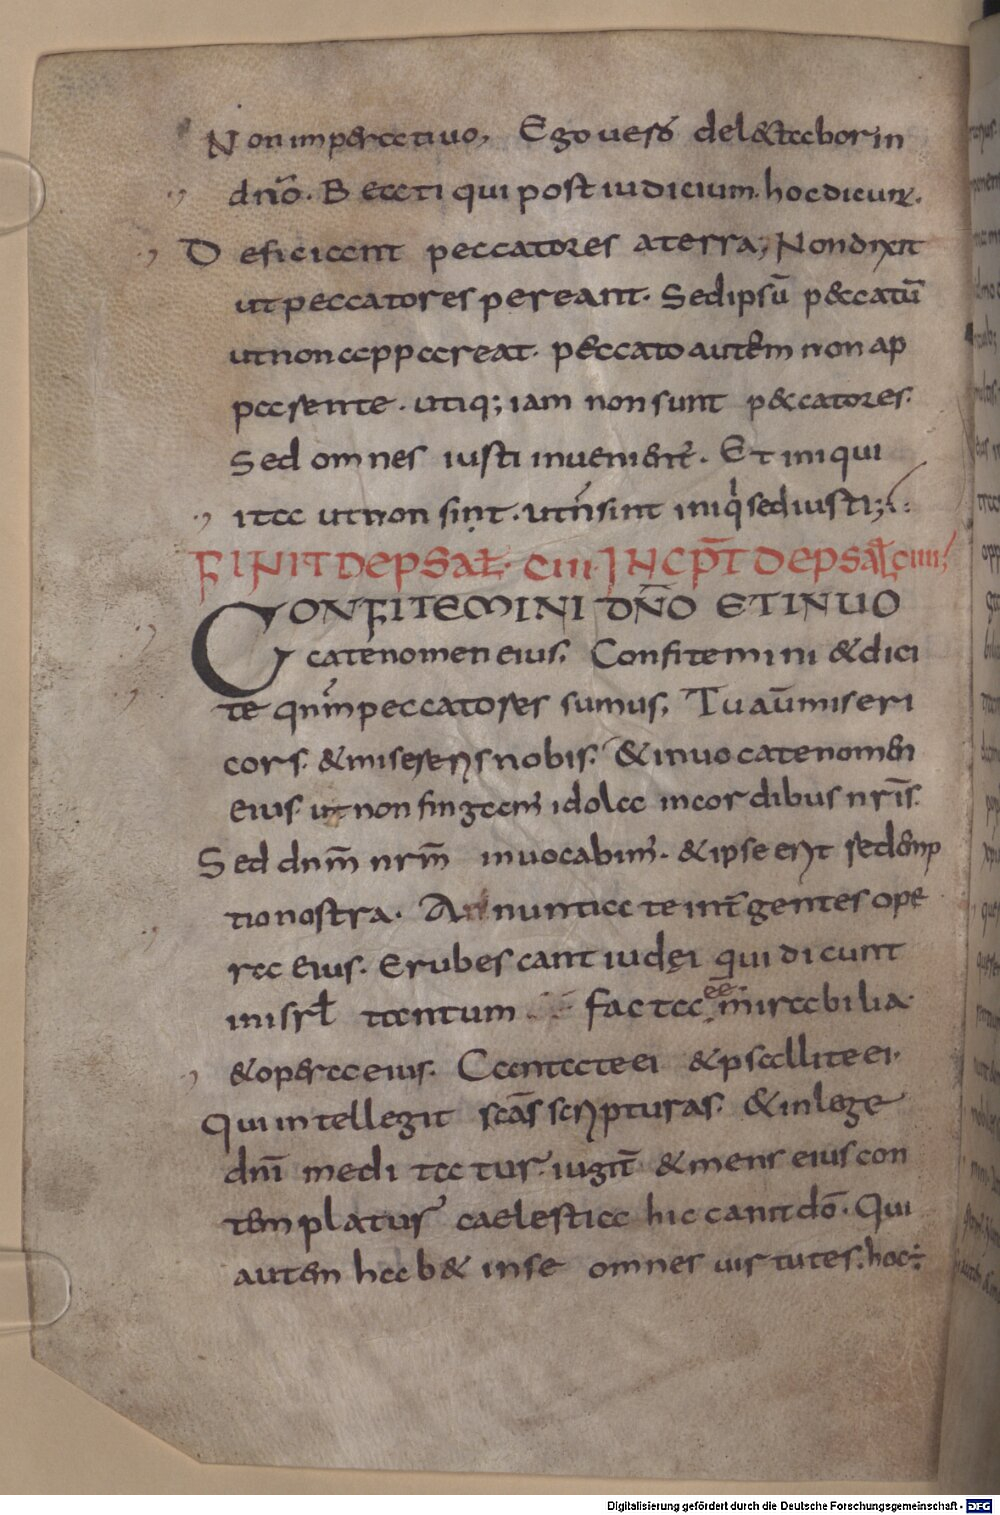 Non imperatiuo, Ego uero del&tabor in
dn̄o. Beati qui post iudicium. hoc dicunt.
Deficiant peccatores a terra, Non dixit
ut peccatores pereant. Sed ipsū p&catū
ut non appareat. peccato autem non ap
parente. utiq; iam non sunt p&catores.
Sed omnes iusti inuenient̄. Et iniqui
ita ut non sint. ut n̄ sint iniqi sed iusti;
FINIT DE PSAL̄. CIII. INCP̄T DE PSAL̄ CIIII
CONFITEMINI DN̄O ET INUO
cate nomen eius, Confitemini & dici
te qnm̄ peccatores sumus, Tu aūm miseri
cors. & misereris nobis. & inuocate nomen
eius. ut non fingam̄ idola in cordibus nr̄is.
Sed dnm̄ nrm̄ inuocabim̄. & ipse erit redemp
tio nostra. Adnuntiate int̄ gentes ope
ra eius. Erubescant iudęi qui dicunt
in isrł tantum facta ee mirabilia
& opera eius. Cantate ei & psallite ei.
Qui intellegit scās scripturas. & in lege
dnī meditatur. iugit̄ & mens eius con
templatur caelestia hic canit dō. Qui
autem hab& in se omnes uirtutes. hoc÷